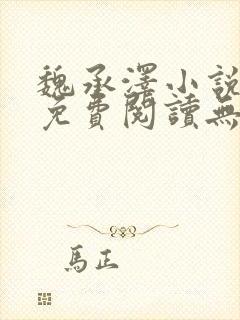 魏承澤小說
免費閱讀無
馬正